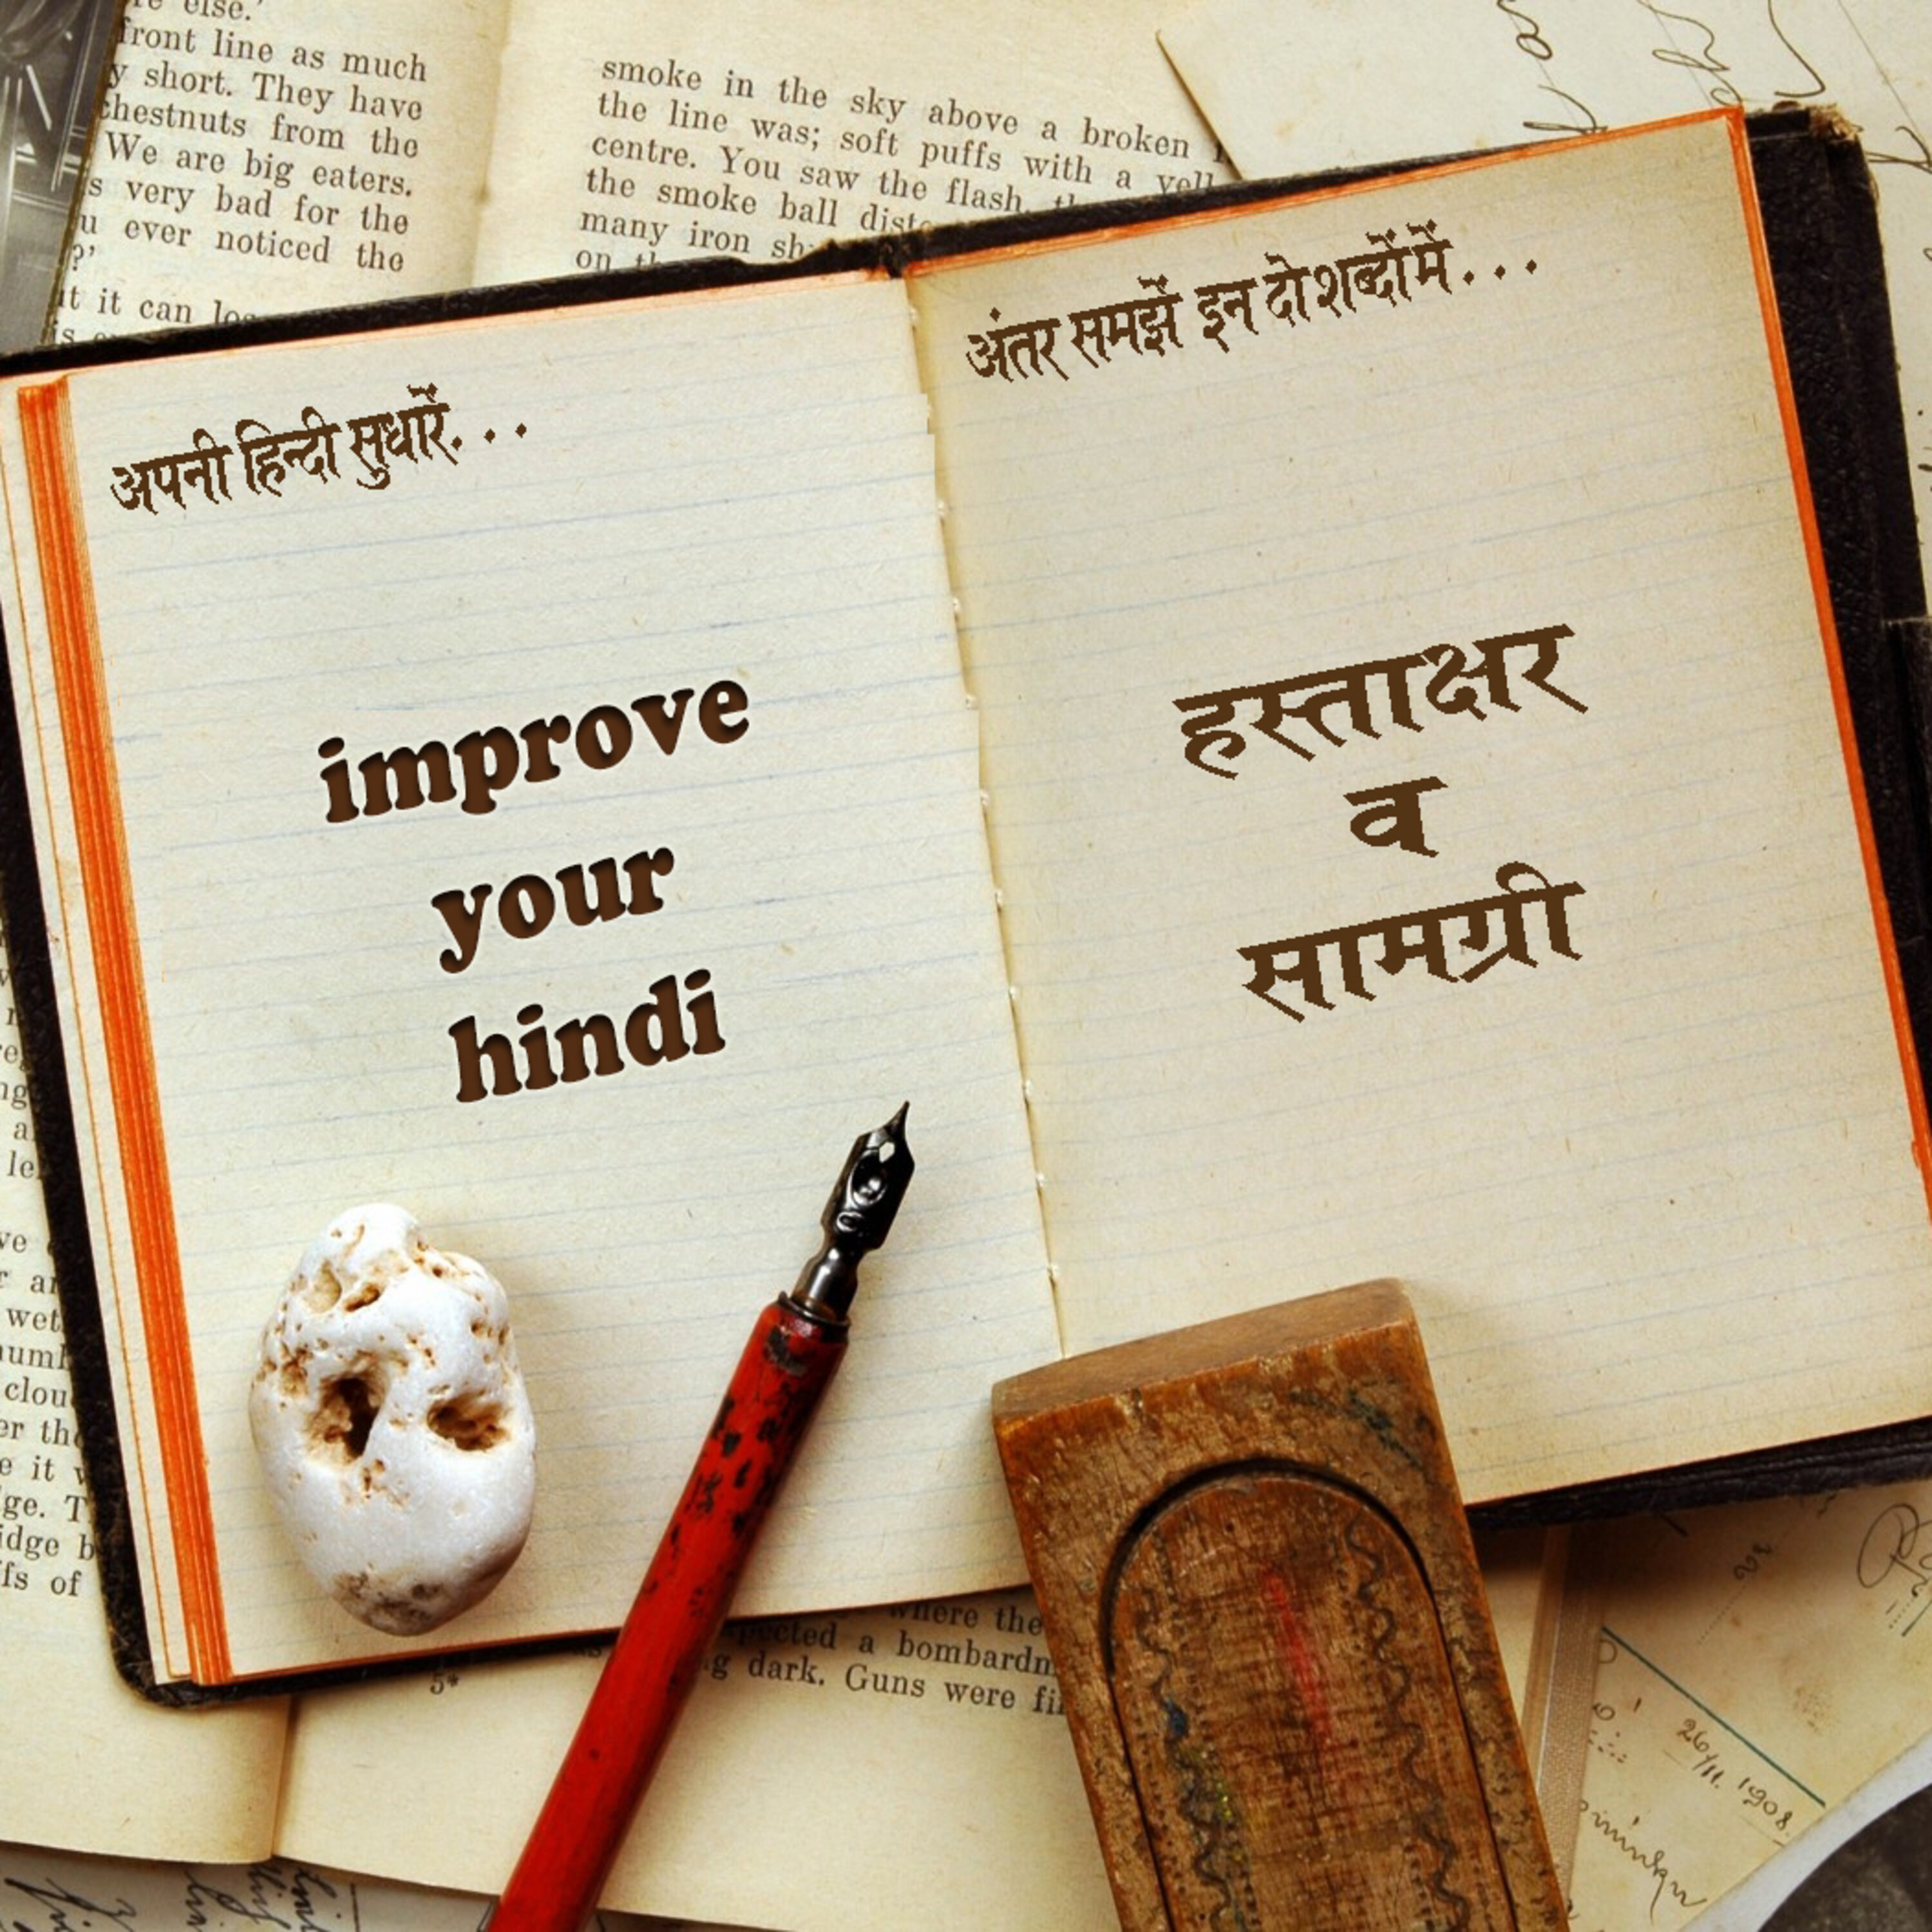 re else.'
front line as much
y short. They have
chestnuts from the
We are big eaters.
s very bad for the
u ever noticed the
?'
it it can
smoke in the sky above a broken
the line was; soft puffs with a
centre. You saw the flash
the smoke ball
many iron
on
अपनी हिन्दी सुधारें...
improve
your
hindi
अंतर समझें इन दो शब्दों में...
हस्ताक्षर
व
सामग्री
a
le
wet
er the
e it
ge. T
idge b
fs of
where the
a
dark. Guns were
5*
26/11. 1908.